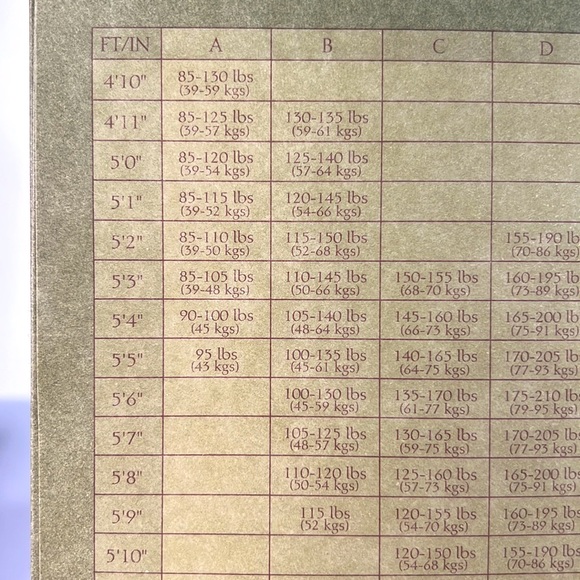 FT/IN A B C D
4'10" 85-130 lbs
(39-59 kgs)
4'11" 85-125 lbs 130-135 lbs
(39-57 kgs) (59-61 kgs)
5'0" 85-120 lbs 125-140 lbs
(39-54 kgs) (57-64 kgs)
5'1" 85-115 lbs 120-145 lbs
(39-52 kgs) (54-66 kgs)
5'2" 85-110 lbs 115-150 lbs 155-190 lb
(39-50 kgs) (52-68 kgs) (70-86 kgs)
5'3" 85-105 lbs 110-145 lbs 150-155 lbs 160-195 lb
(39-48 kgs) (50-66 kgs) (68-70 kgs) (73-89 kgs)
5'4" 90-100 lbs 105-140 lbs 145-160 lbs 165-200 lb
(45 kgs) (48-64 kgs) (66-73 kgs) (75-91 kgs)
5'5" 95 lbs 100-135 lbs 140-165 lbs 170-205 lb
(43 kgs) (45-61 kgs) (64-75 kgs) (77-93 kgs)
5'6" 100-130 lbs 135-170 lbs 175-210 lbs
(45-59 kgs) (61-77 kgs) (79-95 kgs)
5'7" 105-125 lbs 130-165 lbs 170-205 lbs
(48-57 kgs) (59-75 kgs) (77-93 kgs)
5'8" 110-120 lbs 125-160 lbs 165-200 lbs
(50-54 kgs) (57-73 kgs) (75-91 kgs)
5'9" 115 lbs 120-155 lbs 160-195 lbs
(52 kgs) (54-70 kgs) (73-89 kgs)
5'10" 120-150 lbs 155-190 lbs
(54-68 kgs) (70-86 kgs)